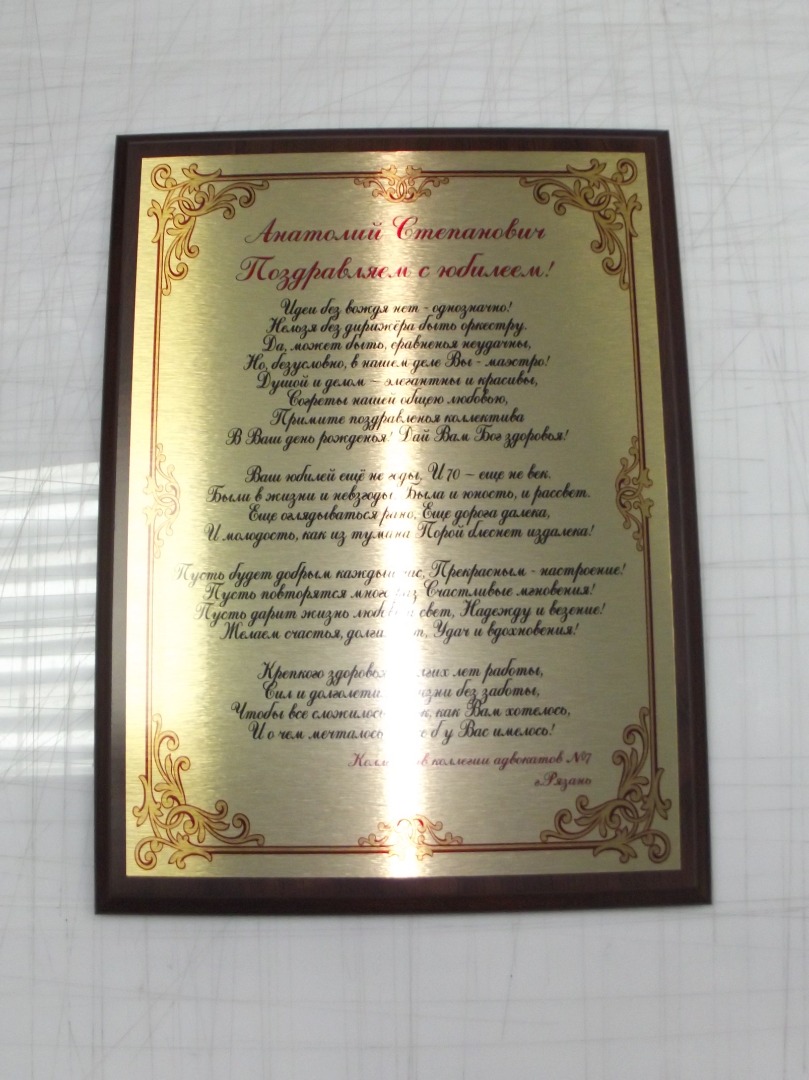 Анатолий Степанович
Поздравляем с юбилеем!
Идеи без вождя нет - однозначно!
Нельзя без дирижёра быть оркестру.
Да, может быть, сравненья неудачны,
Но, безусловно, в нашем деле Вы - маэстро!
Душой и делом – элегантны и красивы,
Согреты нашей общею любовью,
Примите поздравленья коллектива
В Ваш день рожденья! Дай Вам Бог здоровья!
Ваш юбилей ещё не годы, И 70 – еще не век.
Были в жизни и невзгоды, Была и юность, и рассвет.
Еще оглядываться рано, Еще дорога далека,
И молодость, как из тумана Порой блеснет издалека!
Пусть будет добрым каждый час, Прекрасным - настроение!
Пусть повторятся много раз Счастливые мгновения!
Пусть дарит жизнь любовь и свет, Надежду и везение!
Желаем счастья, Удач и вдохновения!
Крепкого лет работы,
Сил и без заботы,
Чтобы все как Вам хотелось,
И о чем б у Вас имелось!
коллегии адвокатов №7
г.Рязань